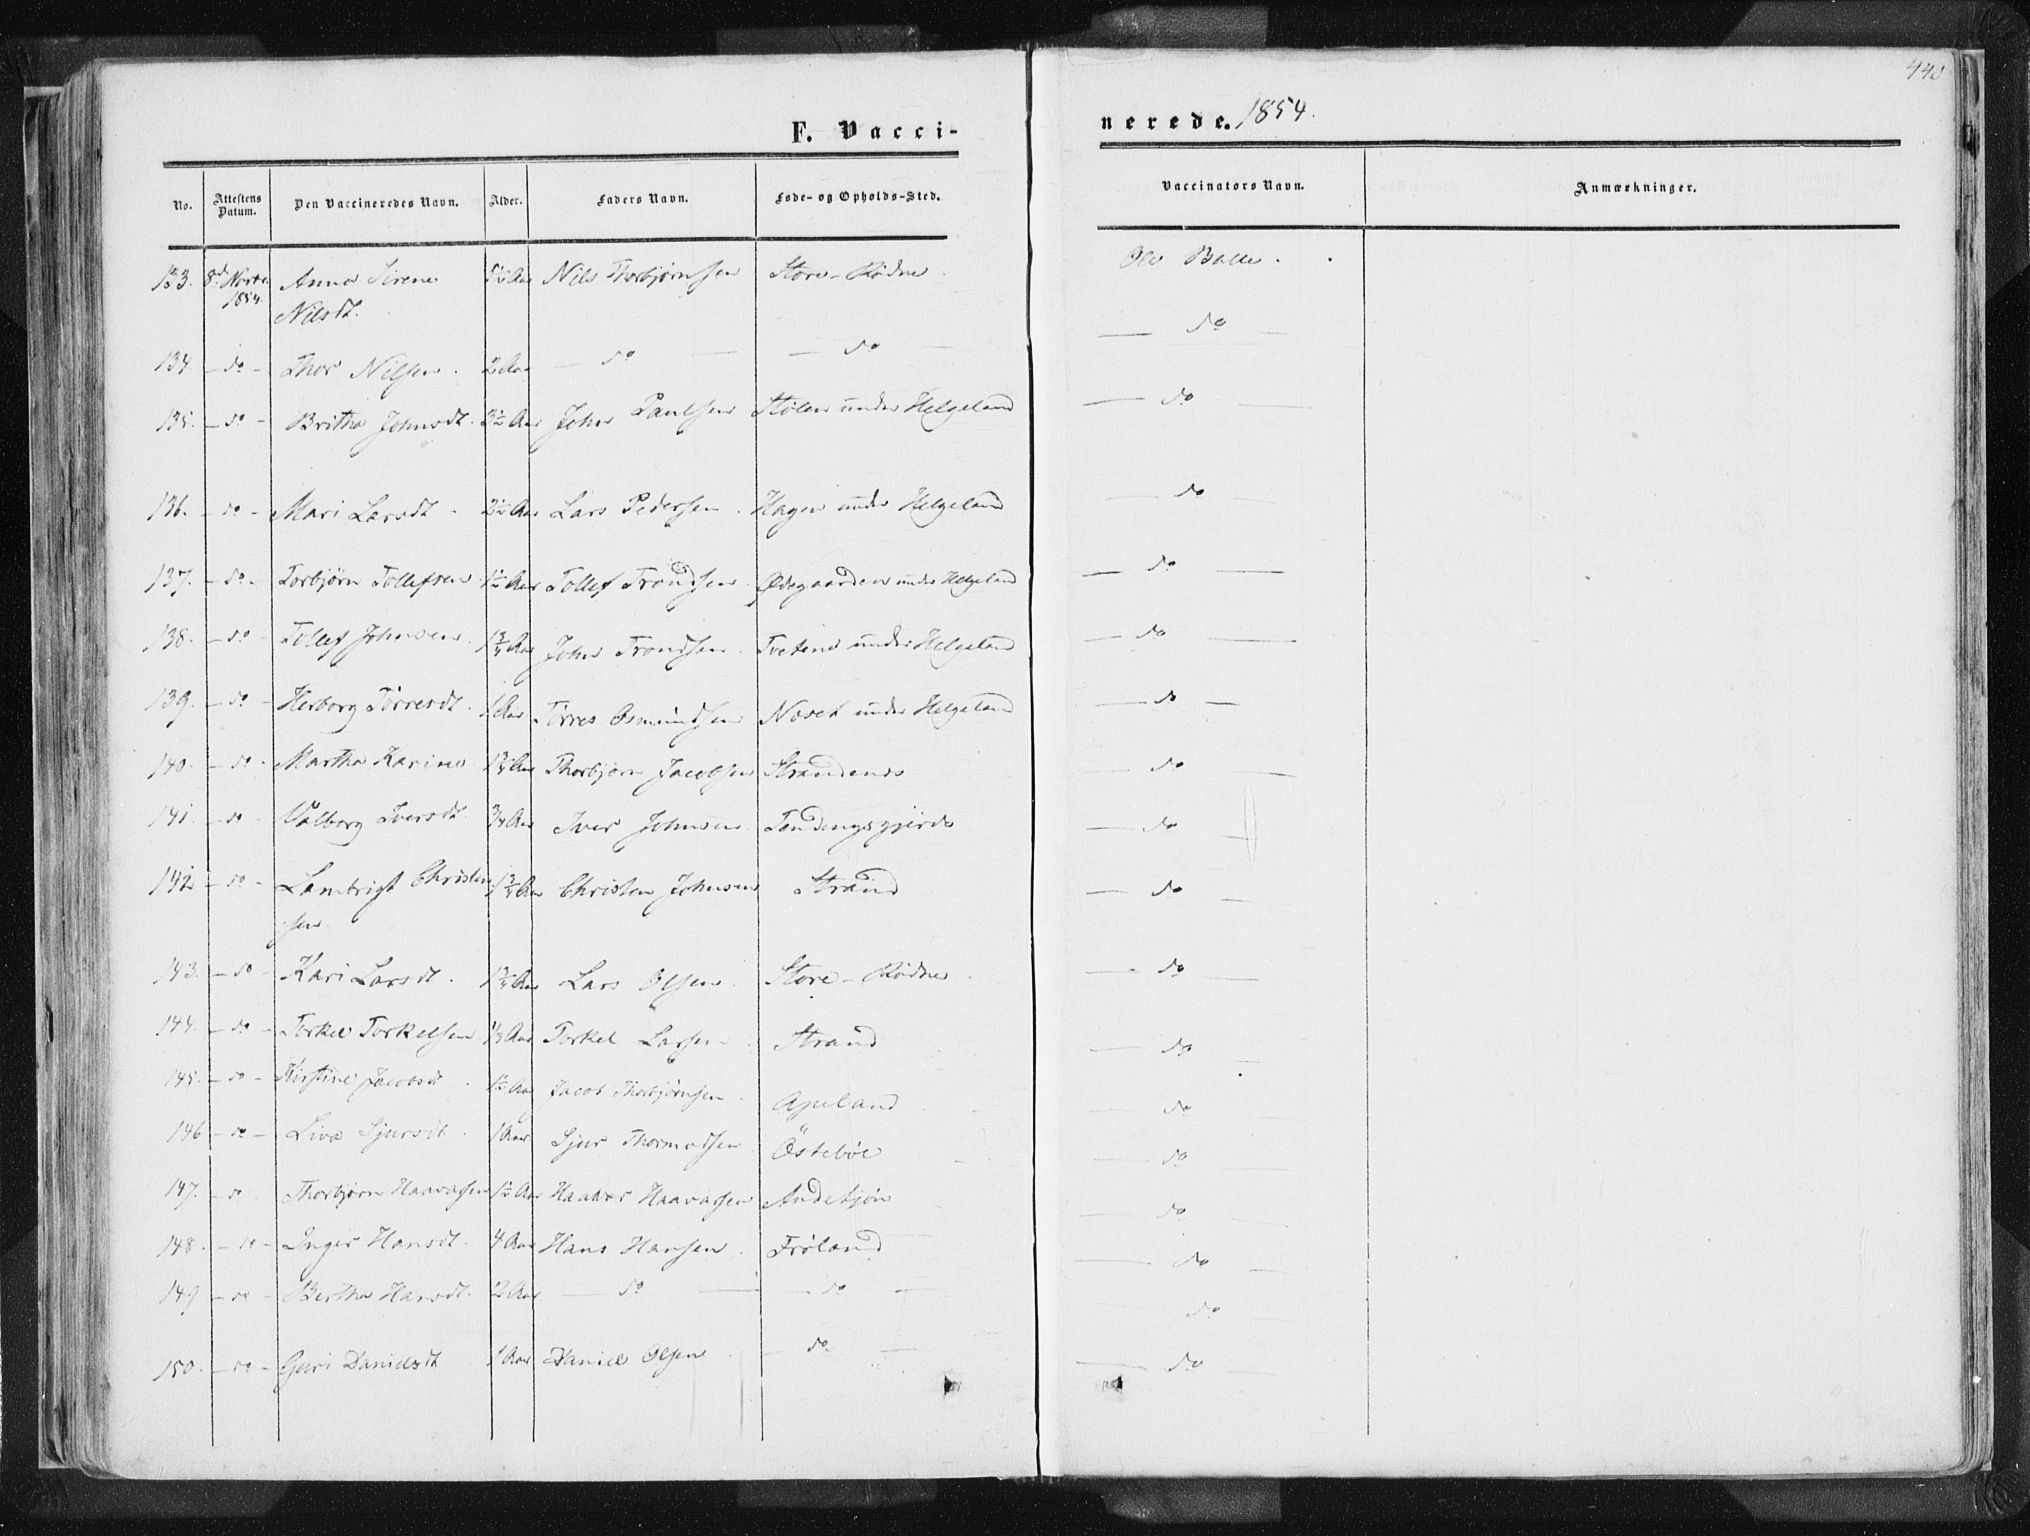 440
F. Vacci-
nerede. 1854.
No. Attestens Datum. Den Vaccineredes Navn. Alder. Faders Navn. Føde- og Opholds-Sted. Vaccinators Navn. Anmærkninger.
133. 8d 1854. Anna Sirene Nilsdt. Aar Nils Thorbjørnssen Store-Rødne. Ole Balle.
134. — do — Thor Nilsen. 2 Aar — do — — do — — do —
135. — do — Britha Johnsdt. 3½ Aar John Paulsen Stølen under Helgeland — do —
136. — do — Mari Larsdt. 2½ Aar Lars Pedersen. Hagen under Helgeland — do —
137. — do — Torbjørn Tollefsen 1½ Aar Tollef Trondsen. Ødegaarden under Helgeland — do —
138. — do — Tollef Johnsen. 1¾ Aar John Trondsen. Tveten under Helgeland — do —
139. — do — Herborg Tørresdt. 1 Aar Tørres Osmundsen Neset under Helgeland — do —
140. — do — Martha Karine 1¾ Aar Thorbjørn Jacobsen Strandenes — do —
141. — do — Valborg Iversdt. ¾ Aar Iver Johnsen. — do —
142 — do — Lambrigt Christensen. 1¾ Aar Christen Johnsen Strand — do —
143. — do — Kari Larsdt. 1¾ Aar Lars Olsen. Store-Rødne. — do —
144. — do — Torkel Torkelsen ⅓ Aar Torkel Larsen. Strand — do —
145. — do — Kirstine Jacobsdt. 1½ Aar Jacob Thorbjørnsen. Apeland — do —
146 — do — Liva Sjursdt. 1 Aar Sjur Thormodsen Östebøe — do —
147. — do — Thorbjørn Haavarsen 1½ Aar Haavar Haavarsen Andetjøn — do —
148. — do — Inger Hansdt. 4 Aar Hans Hansen. Frøland — do —
149 — do — Bertha Hansdt. 2 Aar — do — — do — — do —
150. — do — Guri Danielsdt 1 Aar Daniel Olsen. — do — — do —